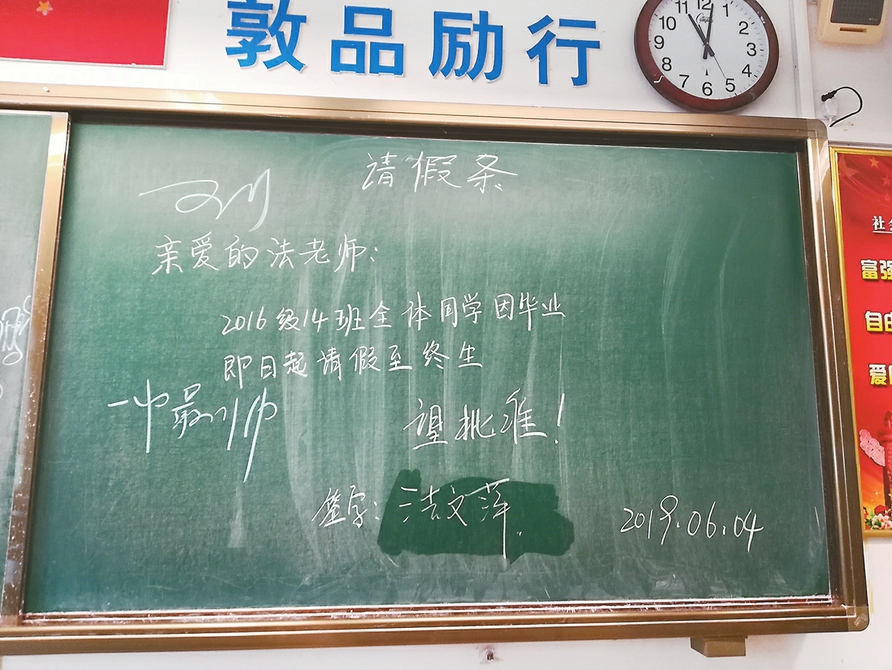 敦品励行
11 12 1
10 2
9 3
8 4
7 6 5
请假条
亲爱的法老师：
2016级14班全体同学因毕业
即日起请假至终生
望批准！
一中最小帅
签字：法文萍
2019.06.04
社会
富强
自由
爱国